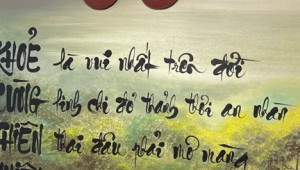 KHOẺ là vui nhất trên đời
ĐỪNG tính chi đó thảnh thơi an nhàn
HIỀN thai đâu phải mơ màng